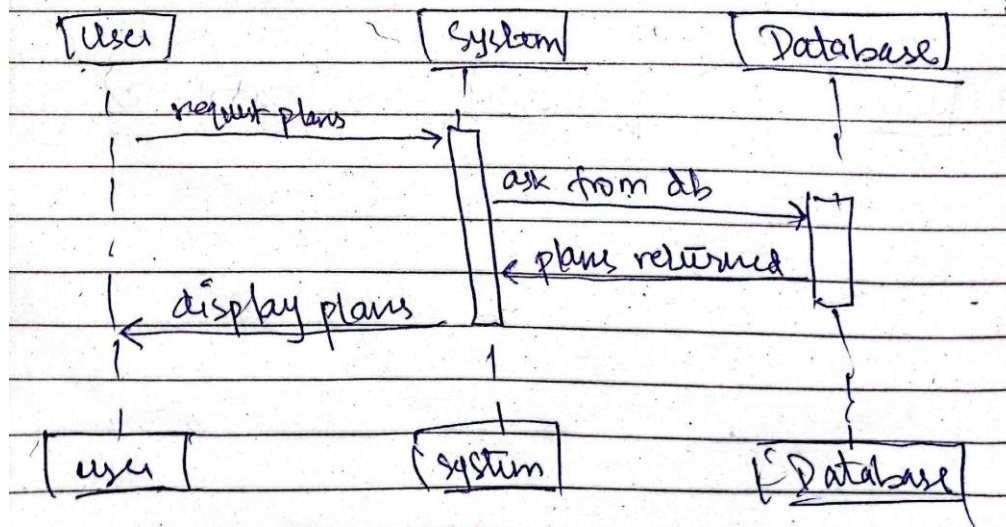 User System Database
request plans
ask from db
plans returned
display plans
user system Database